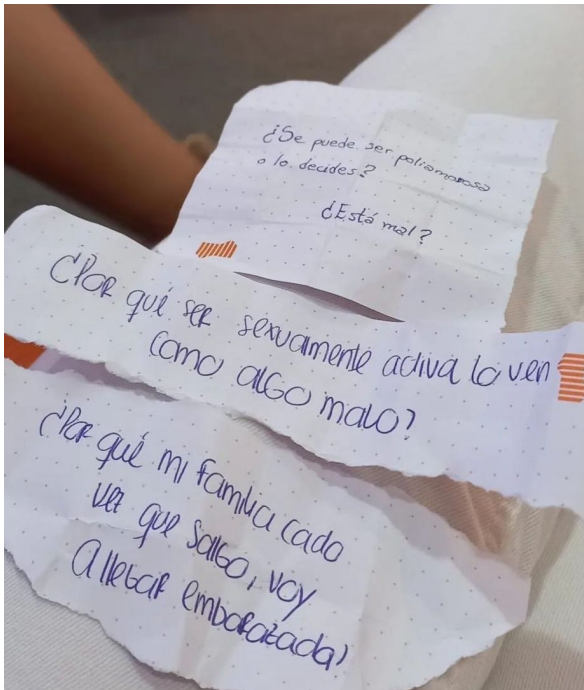 ¿Se puede ser poliamorosa
o lo decides?
¿Está mal?
¿Por qué ser sexuamente activa lo ven
como algo malo?
¿Por qué mi familia cada
vez que salgo, voy
a llegar embarazada?